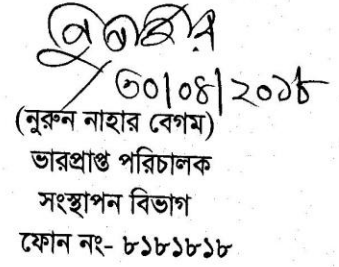 নুরুন নাহার
৩০/০৪/২০১৮
(নুরুন নাহার বেগম)
ভারপ্রাপ্ত পরিচালক
সংস্থাপন বিভাগ
ফোন নং- ৮১৮১৮১৮